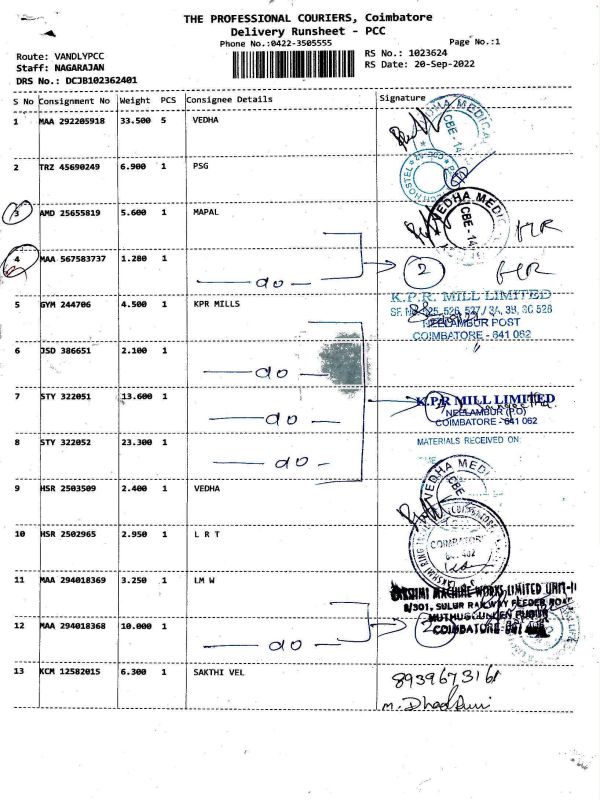 THE PROFESSIONAL COURIERS, Coimbatore
Delivery Runsheet - PCC
Phone No.:0422-3505555
Page No.:1
Route: VANDLYPCC
RS No.: 1023624
Staff: NAGARAJAN
RS Date: 20-Sep-2022
DRS No.: DCJB102362401
S No Consignment No Weight PCS Consignee Details Signature
1 MAA 292205918 33.500 5 VEDHA
VEDHA MEDICAL
CBE - 14
2 TRZ 45690249 6.900 1 PSG
3 AMD 25655819 5.600 1 MAPAL
VEDHA MEDI
CBE - 14
4 MAA 567583737 1.280 1
do
2
5 GYM 244706 4.500 1 KPR MILLS
K.P.R. MILL LIMITED
SF. No. 525, 526, 527 / 3A, 3B, 3C 528
NEELAMBUR POST
COIMBATORE - 641 062
6 JSD 386651 2.100 1
do
7 STY 322051 13.600 1
do
K.P.R MILL LIMITED
NEELAMBUR (P.O)
COIMBATORE - 641 062
8 STY 322052 23.300 1
do
MATERIALS RECEIVED ON:
9 HSR 2503509 2.400 1 VEDHA
VEDHA MEDI
CBE
10 HSR 2502965 2.950 1 L R T
LAKSHMI RING
COIMBATORE
641 402
11 MAA 294018369 3.250 1 LM W
LAKSHMI MACHINE WORKS LIMITED UNIT-II
8/301, SULUR RAILWAY FEEDER ROAD
12 MAA 294018368 10.000 1
do
2
COIMBATORE
13 KCM 12582015 6.300 1 SAKTHI VEL
8939673161